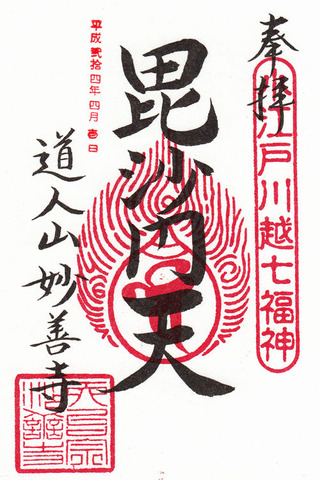 奉拝
小江戸川越七福神
毘沙門天
平成弐拾四年四月壱日
道人山妙善寺